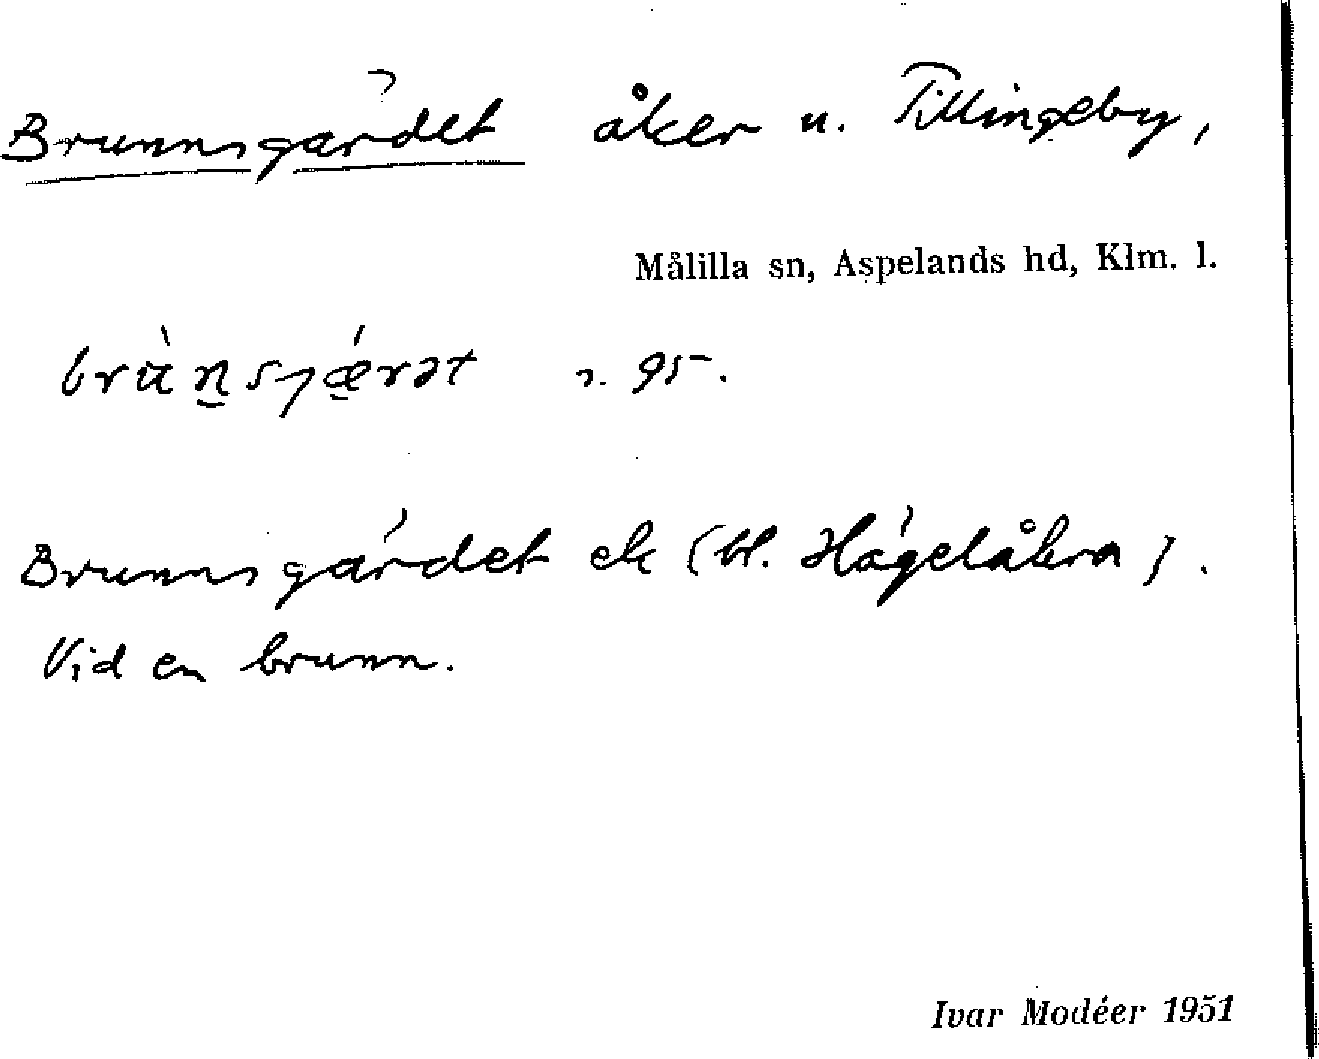 Brunnsgärdet åker u. Tillingeby,
Målilla sn, Aspelands hd, Klm. l.
95.
Brunnsgärdet ek (bl. Hägelåkra).
Vid en brunn.
Ivar Modéer 1951